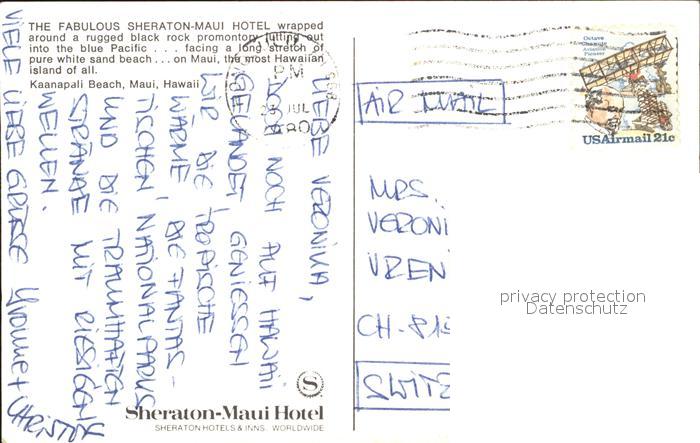 THE FABULOUS SHERATON-MAUI HOTEL wrapped
around a rugged black rock promontory jutting out
into the blue Pacific . . . facing a long stretch of
pure white sand beach . . . on Maui, the most Hawaiian
island of all.
Kaanapali Beach, Maui, Hawaii
PM
JUL
LIEBE VERONIKA,
NOCH AUF HAWAII
GELANDET, GENIESSEN
WIR DIE TROPISCHE
WÄRME, DIE FANTAS-
TISCHEN NATIONALPARKS
UND DIE TRAUMHAFTEN
STRÄNDE MIT RIESIGEN
WELLEN.
VIELE LIEBE GRÜSSE Yvonne +
Sheraton-Maui Hotel
SHERATON HOTELS & INNS, WORLDWIDE
S
Octave
Chanute
Aviation
Pioneer
USAirmail 21c
AIR MAIL
MRS.
VERONI
VREN
CH-815
SWITZ
privacy protection
Datenschutz